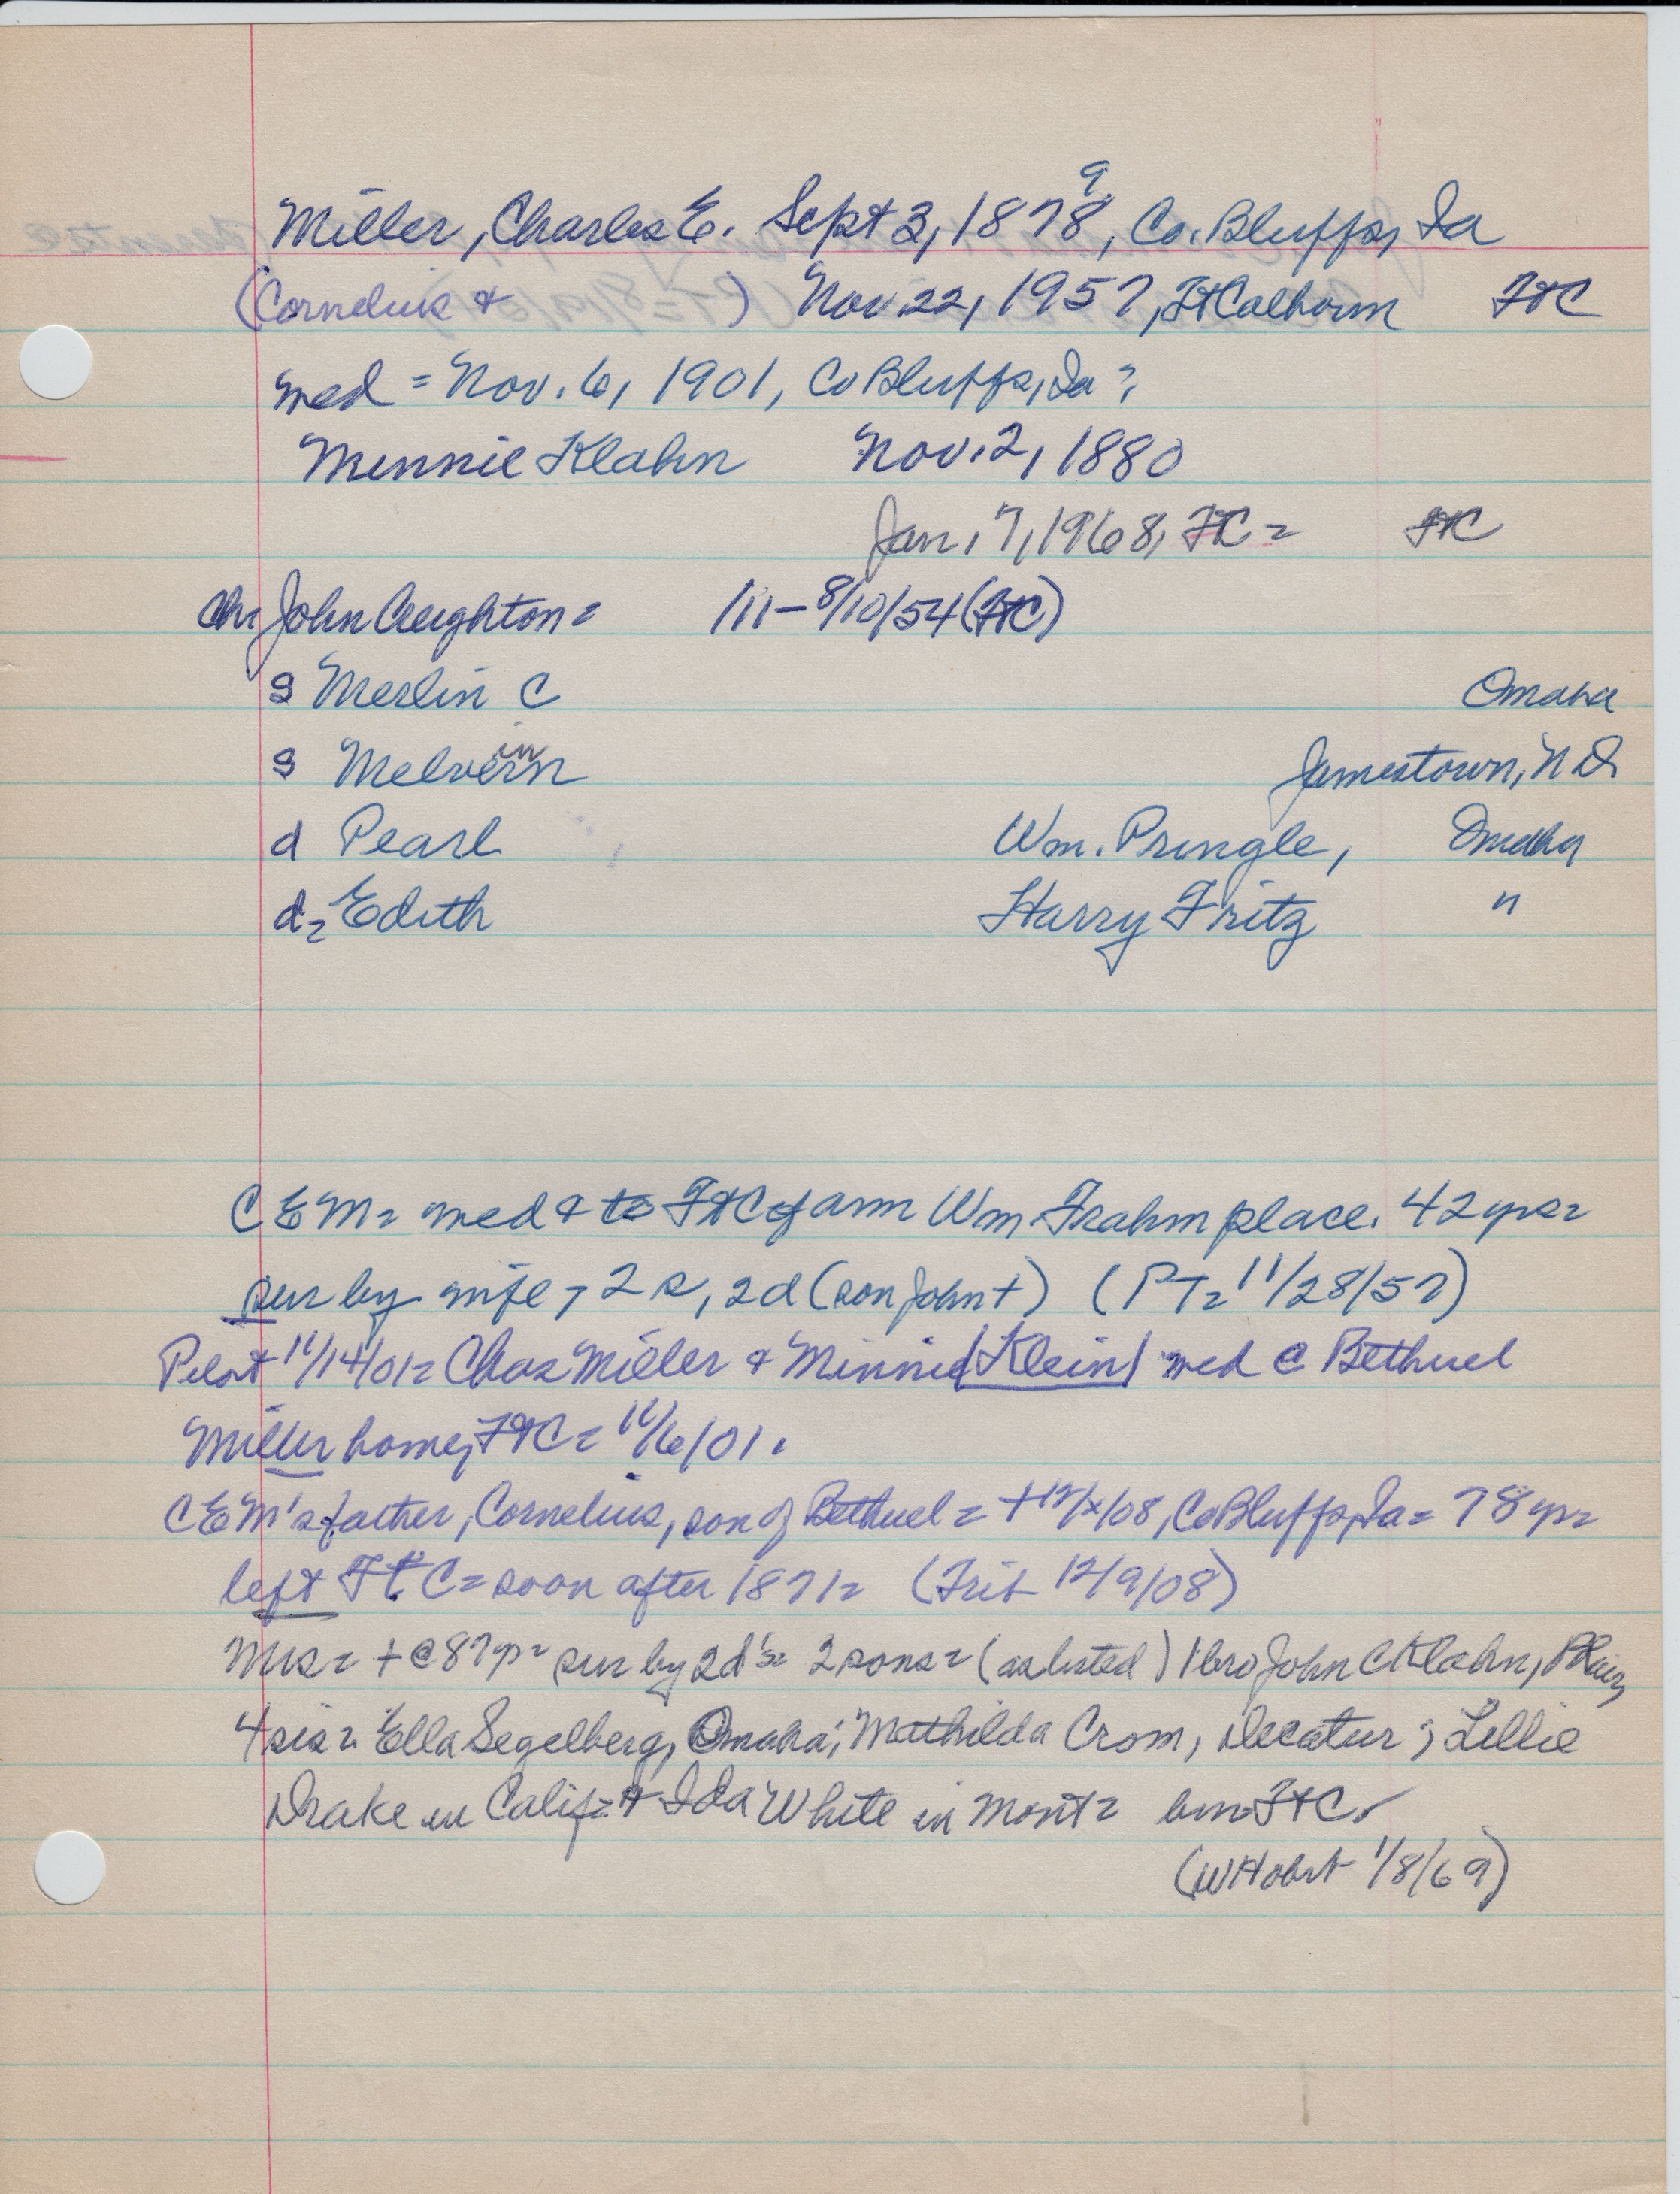 9
Miller, Charles E. Sept 3, 1878, Co. Bluffs, Ia
(Cornelius & ) Nov 22, 1957, Ft Calhoun FtC
med = Nov. 6, 1901, Co Bluffs, Ia?
Minnie Klahn Nov. 2, 1880
Jan. 7, 1968, FtC = FtC
Ch= John Creighton = /11 - 8/10/54 (FtC)
s Merlin C Omaha
in
s Melvern Jamestown, N D
d Pearl Wm. Pringle, Omaha
d= Edith Harry Fritz "
C E M = med & to FtC farm Wm Frahm place. 42 yrs =
sur by wife, 2 s, 2d (son John +) (PT = 11/28/57)
Pilot 11/14/01 = Chas Miller & Minnie Klein med @ Bethuel
Miller home, FtC = 11/6/01.
C E M's father, Cornelius, son of Bethuel = + 12/x/08, Co Bluffs, Ia = 78 yr =
left Ft C = soon after 1871 = (Trib 12/9/08)
Mrs = + @ 87 yr = sur by 2 d's = 2 sons = (as listed) 1 bro John C Klahn,
4 sis = Ella Segelberg, Omaha; Mathilda Crom, Decatur; Lillie
Drake in Calif = & Ida White in Mont = bur FtC
(W H obit 1/8/69)